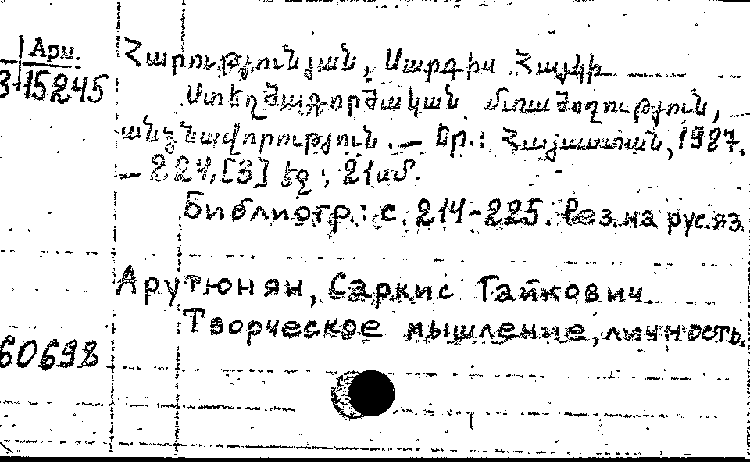 Арм.
3-15245
Հարությունյան, Սարգիս Հայկի
Ստեղծագործական մտածողություն,
անձնավորություն. — Եր.: Հայաստան, 1987.
— 227,[3] էջ ; 21սմ.
Библиогр.: с. 214-225. Рез. на рус. яз.
Арутюнян, Саркис Гайкович
Творческое мышление, личность.
60698